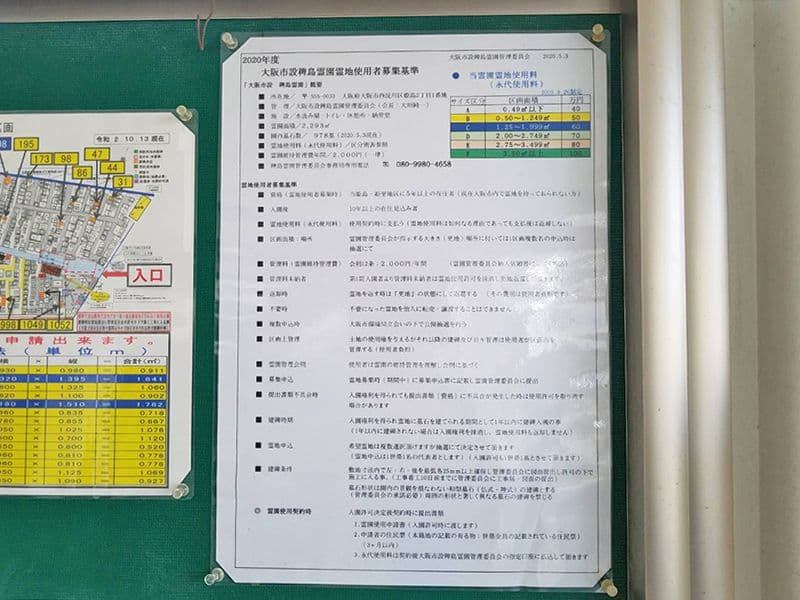 画
令和2.10.13現在
195
173
98
47
86
44
31
入口
998
1049
1052
申請出来ます。
(単位m)
横 × 縦 = 合計(㎡)
930 × 0.980 = 0.911
320 × 1.395 = 1.841
× 1.325 = 1.060
× 1.100 = 0.902
× 1.510 = 1.782
× 0.835 = 0.718
× 0.855 =
× 1.025 = 1.076
× 0.850 =
× 0.850 =
× 0.850 =
× 1.125 = 1.069
× 1.090 = 0.927
2020年度
大阪市設稗島霊園管理委員会 2020.5.3
大阪市設稗島霊園霊地使用者募集基準
「大阪市設 稗島霊園」概要
■ 所在地/ 〒555-0033 大阪府大阪市西淀川区姫島5丁目1番地
■ 管 理/大阪市設稗島霊園管理委員会
■ 施 設/水汲み場・トイレ・休憩所・納骨堂
■ 霊園面積/2,293㎡
■ 園内墓石数/ 978基(2020.5.3現在)
■ 霊地使用料(永代使用料)/区分別表参照
■ 霊園維持管理費年間/2,000円(一律)
■ 稗島霊園管理委員会事務局専用電話 ℡ 080-9980-4658
● 当霊園霊地使用料
(永代使用料)
サイズ区分 区画面積 万円
A 0.49㎡以下 40
B 0.50~1.249㎡ 50
C 1.25~1.999㎡ 60
D 2.00~2.749㎡ 70
E 2.75~3.499㎡ 80
F 3.50㎡以上 100
霊地使用者募集基準
■ 資格(霊地使用者募集時) 当姫島・姫里地区に5年以上の在住者(現在大阪市内で霊地を持っておられない方)
■ 入園後 10年以上の在住見込み者
■ 霊地使用料(永代使用料) 使用契約時に支払う(霊地使用料は如何なる理由であっても支払後は返却しない)
■ 区画面積・場所 霊園管理委員会が指示する大きさ(更地)場所に付いては1区画複数名の申込時は
抽選にて
■ 管理料(霊園維持管理費) 会則は条・2,000円/年間 (霊園管理委員会納入依頼書にて)
■ 管理料未納者
■ 返却時 霊地を返す時は『更地』の状態にして返還する (その費用は使用者負担です)
■ 不要時 不要になった霊地を他人に転売・譲渡することはできません
■ 複数申込時 大阪市環境局立会いの下で公開抽選を行う
■ 区画上管理 土地の使用権を与えるがそれ以降の建碑及び日々管理は使用者が区画内を
管理する(使用者負担)
■ 霊園管理会則 使用者は霊園の維持管理を理解し会則に基づく
■ 募集申込 霊地募集時(期間中)に募集申込書に記載し霊園管理委員会に提出
■ 提出書類不具合時 入園権利を得られても提出書類(資格)に不具合が発生した時は使用許可を取り消す
場合があります
■ 建碑時期 入園権利を得られ霊地に墓石を建てられる期間として1年以内に建碑入魂の事
(1年以内に建碑されない場合は入園権利を抹消し、霊地使用料も返却しません)
■ 霊地申込 希望霊地は複数選択頂けますが抽選にて決定させて頂きます
(霊地申込は1世帯1名の代表者とします)(入園許可も1世帯1基とさせて頂きます)
■ 建碑条件 敷地寸法内で左・右・後を最低各25mm以上確保し管理委員会に図面提出し許可の下で
施工に入る事。(工事着工10日前までに管理委員会に工事届・図面の提出)
墓石形状は園内の景観を損なわない和型墓石(仏式・神式)の建碑とする
(管理委員会の承諾必要)周囲の形状と著しく異なる墓石の建碑を禁じる
◎ 霊園使用契約時 入園許可決定後契約時に提出書類
1.霊園使用申請書(入園許可時に渡します)
2.申請者の住民票(本籍地の記載の有る物:世帯全員の記載されている住民票)
(3ヶ月以内)
3.永代使用料は契約後大阪市設稗島霊園管理委員会の指定口座に払込して頂きます